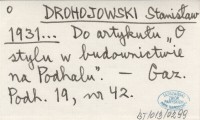 o DROHOJOWSKI Stanisław
1931... Do artykułu „O
stylu w budownictwie
na Podhalu". — Gaz.
Podh. 19, nr 42.